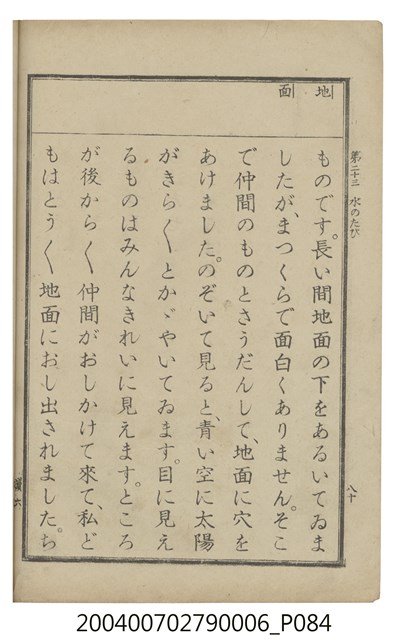 第二十三 水のたび
八十
地
面
ものです。長い間地面の下をあるいてゐま
したが、まつくらで面白くありません。そこ
で仲間のものとさうだんして、地面に穴を
あけました。のぞいて見ると、青い空に太陽
がきら〳〵とかゞやいてゐます。目に見え
るものはみんなきれいに見えます。ところ
が後から〳〵仲間がおしかけて來て、私ど
もはとう〳〵地面におし出されました。ち
200400702790006_P084